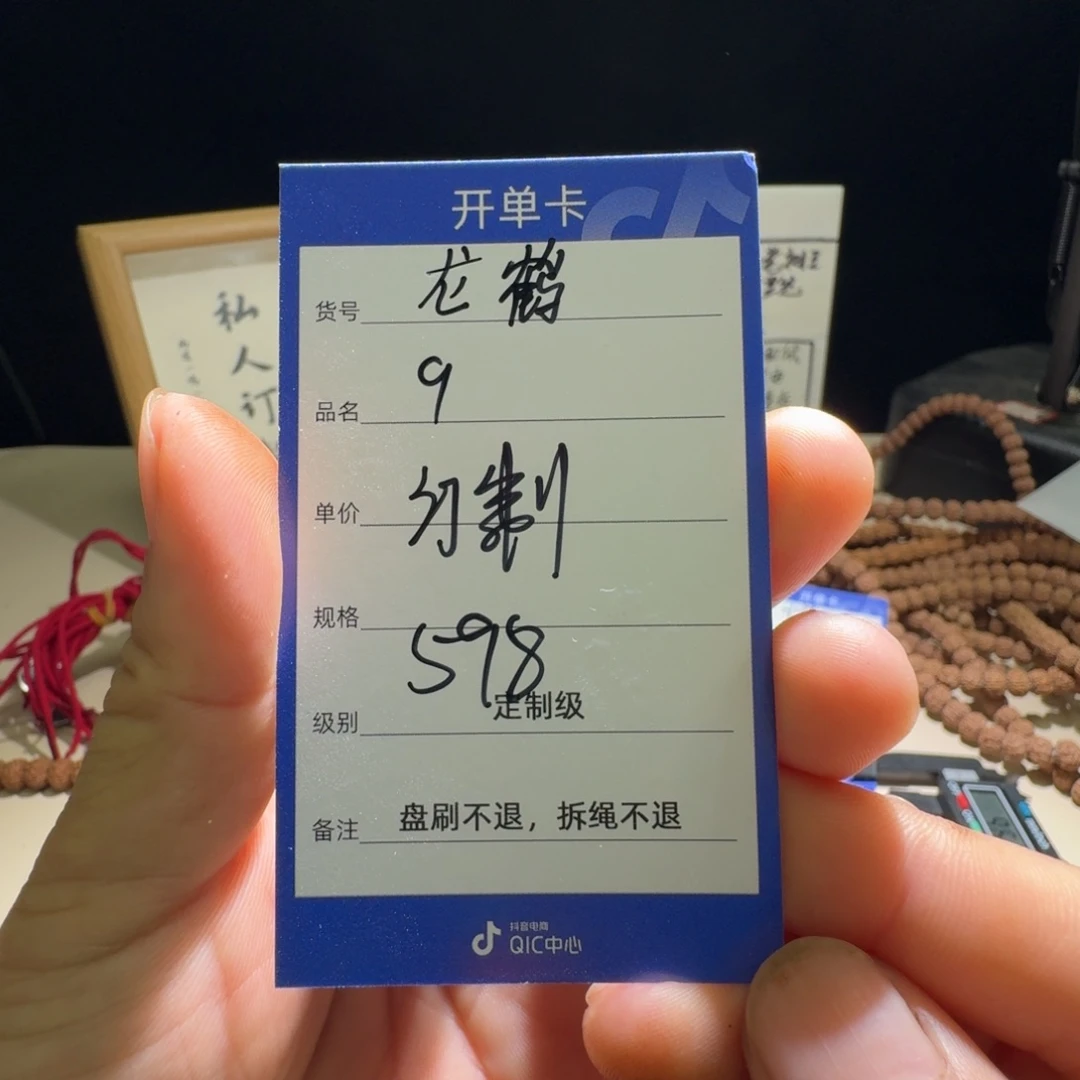 开单卡
货号 龙鹤
品名 9
单价 勿制
规格
598
级别 定制级
备注 盘刷不退，拆绳不退
抖音电商
QIC中心
私
人
订